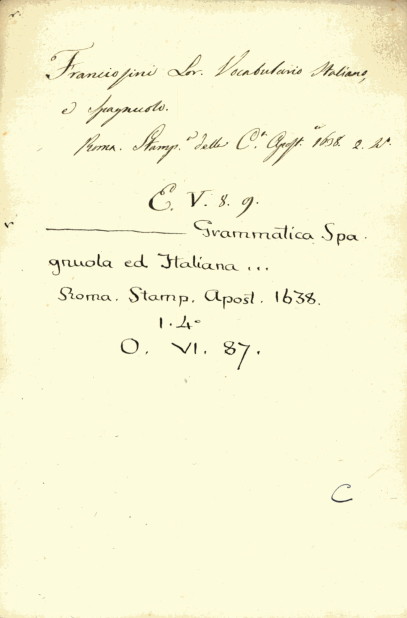 Franciosini Lor. Vocabulario Italiano,
e Spagnuolo.
Roma. Stamp.a della C.a Apost.a 1638. 2. 4°.
E. V. 8. 9.
——— Grammatica Spa-
gnuola ed Italiana ...
Roma. Stamp. Apost. 1638.
1. 4°
O. VI. 87.
C